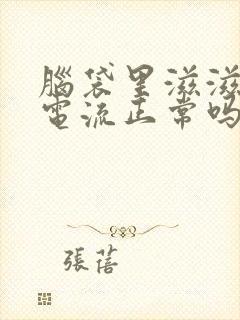 腦袋里滋滋
電流正常嗎
張蓓